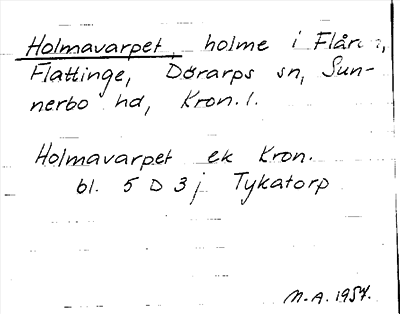 Holmavarpet, holme i Flåren,
Flattinge, Dörarps sn, Sun-
nerbo hd, Kron. l.
Holmavarpet ek Kron.
bl. 5 D 3 j Tykatorp
M-A. 1957.